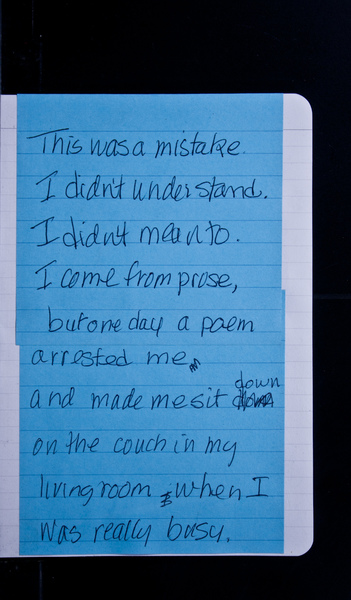 This was a mistake.
I didn't understand.
I didn't mean to.
I come from prose,
but one day a poem
arrested me
and made me sit down
on the couch in my
living room when I
was really busy.